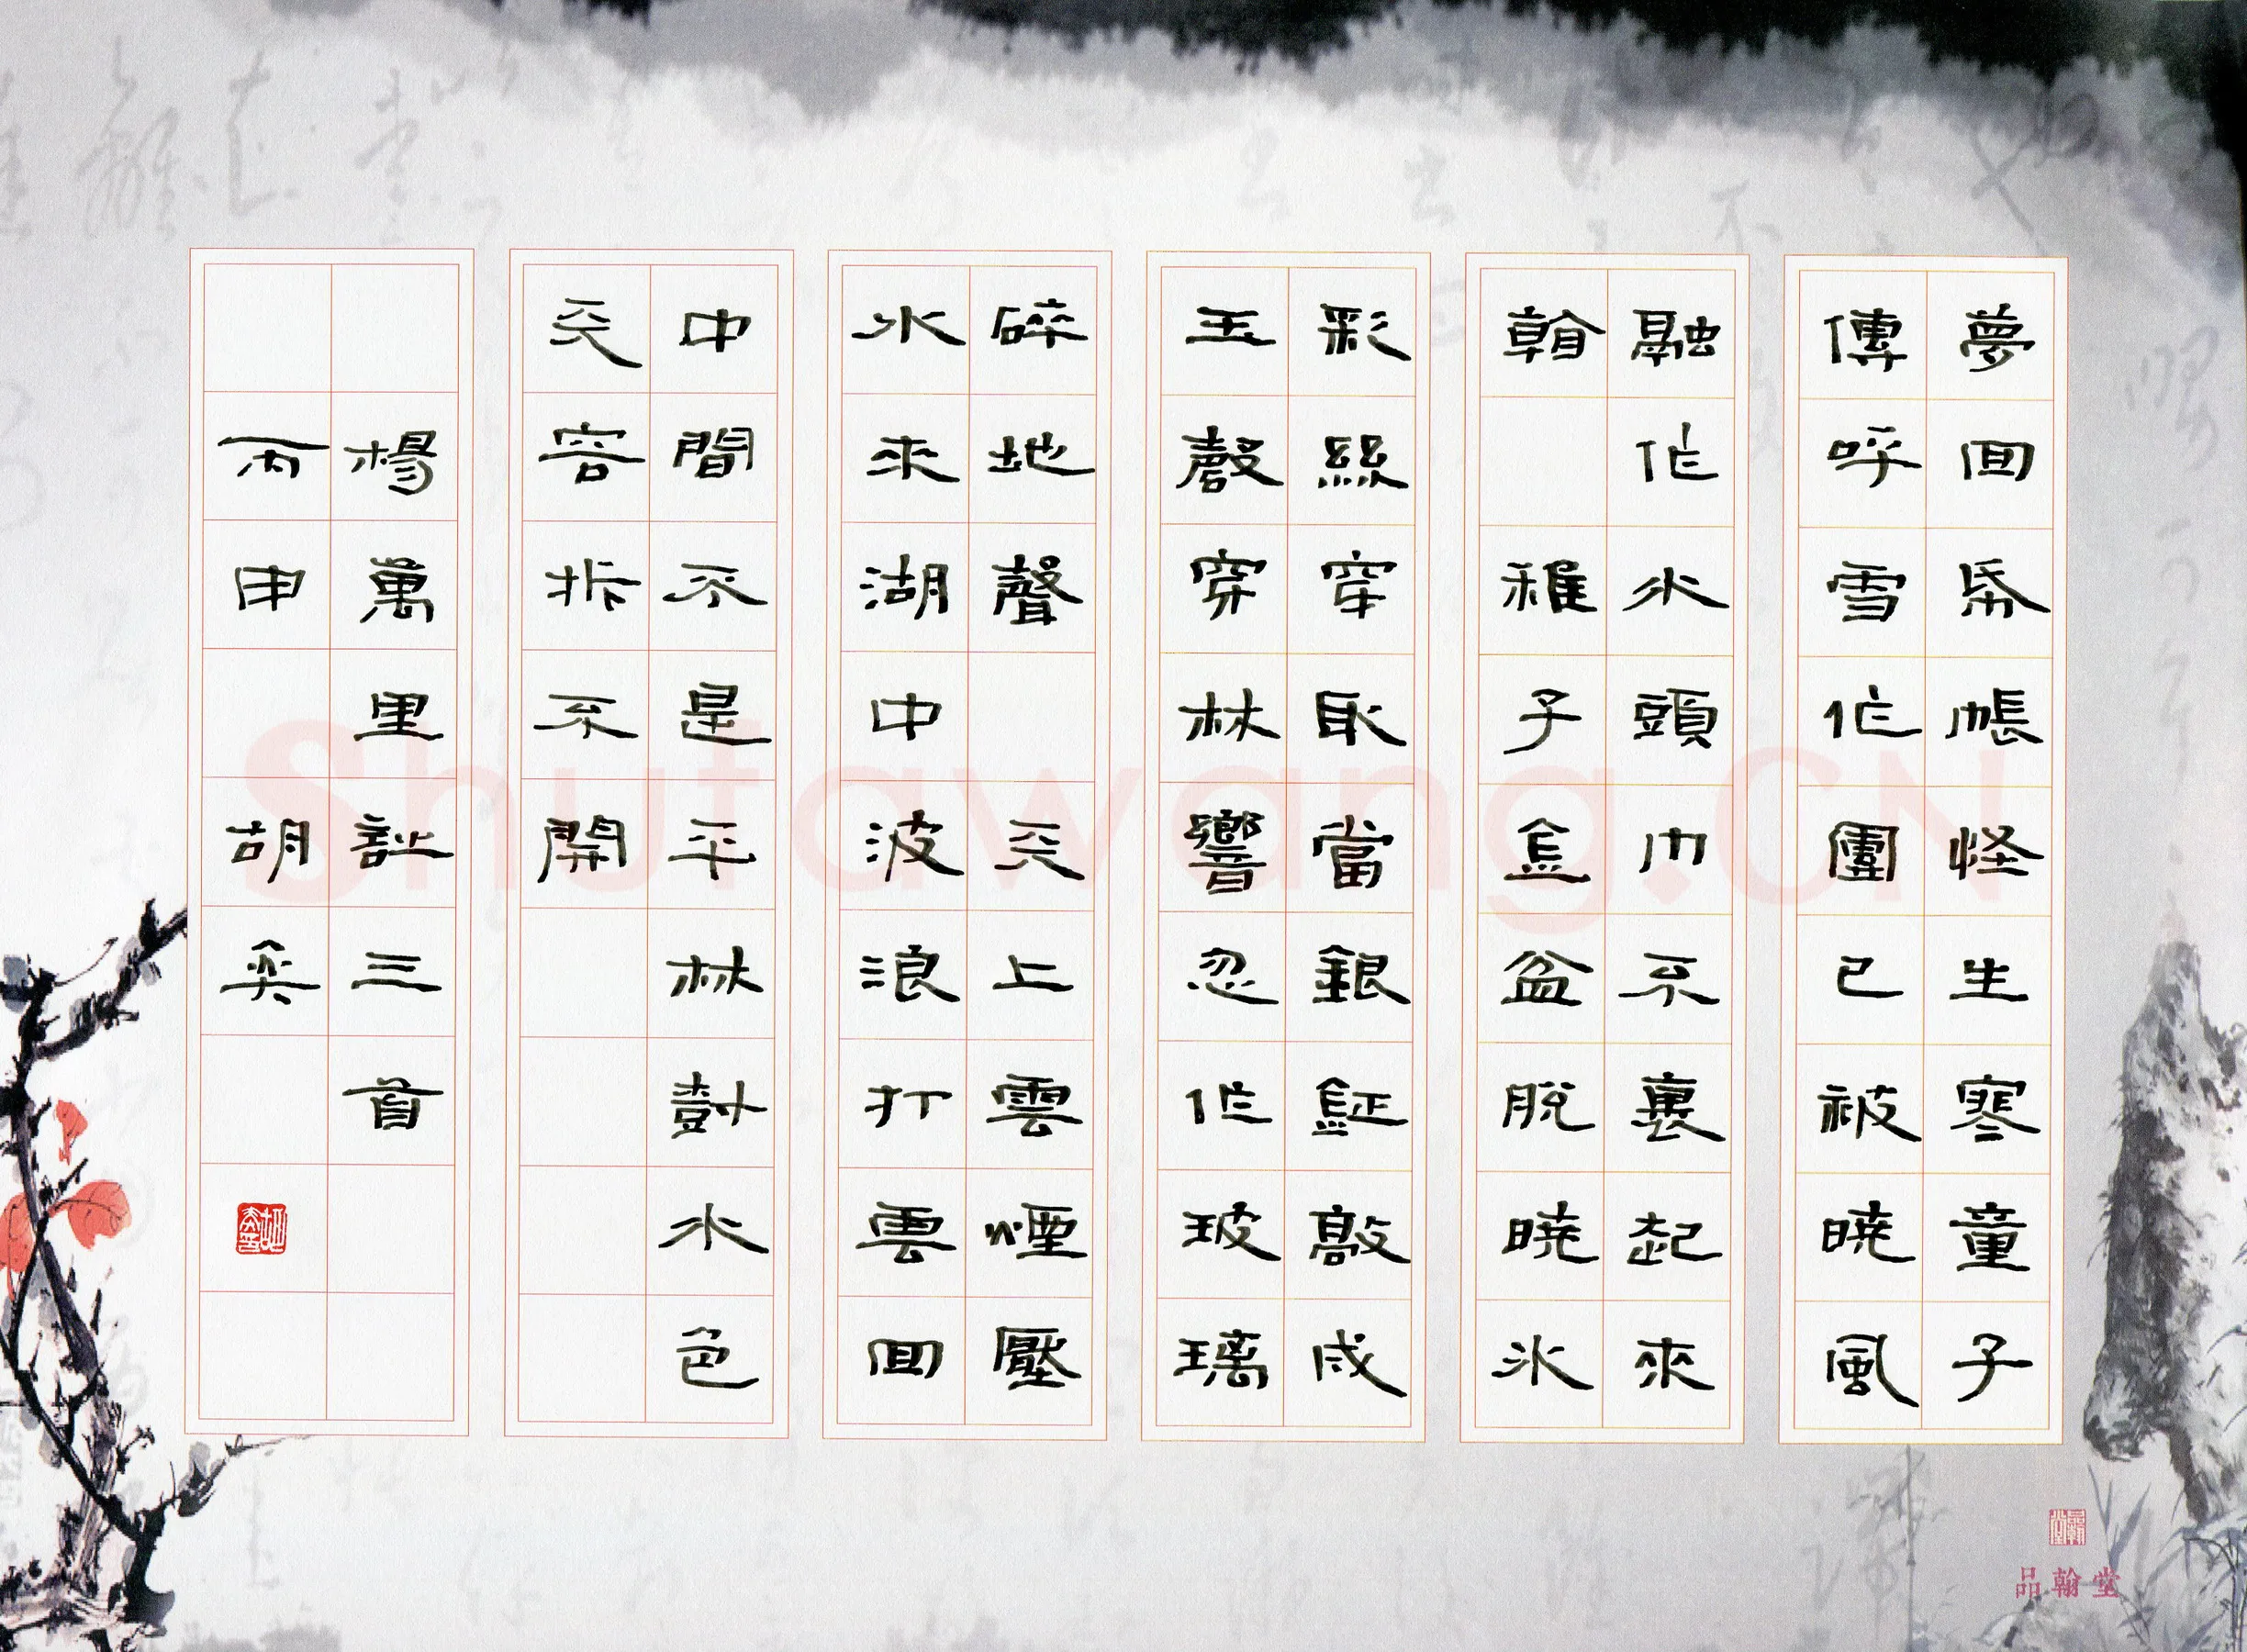 夢回帋帳怪生寒童子
傳呼雪作團已被曉風
融作水頭巾不裹起來
看 稚子金盆脫曉冰
彩絲穿取當銀鉦敲成
玉磬穿林響忽作玻璃
碎地聲 天上雲煙壓
水來湖中波浪打雲回
中間不是平林樹水色
天容拆不開
楊萬里詩三首
丙申 胡奕
品翰堂
Shufawang.CN